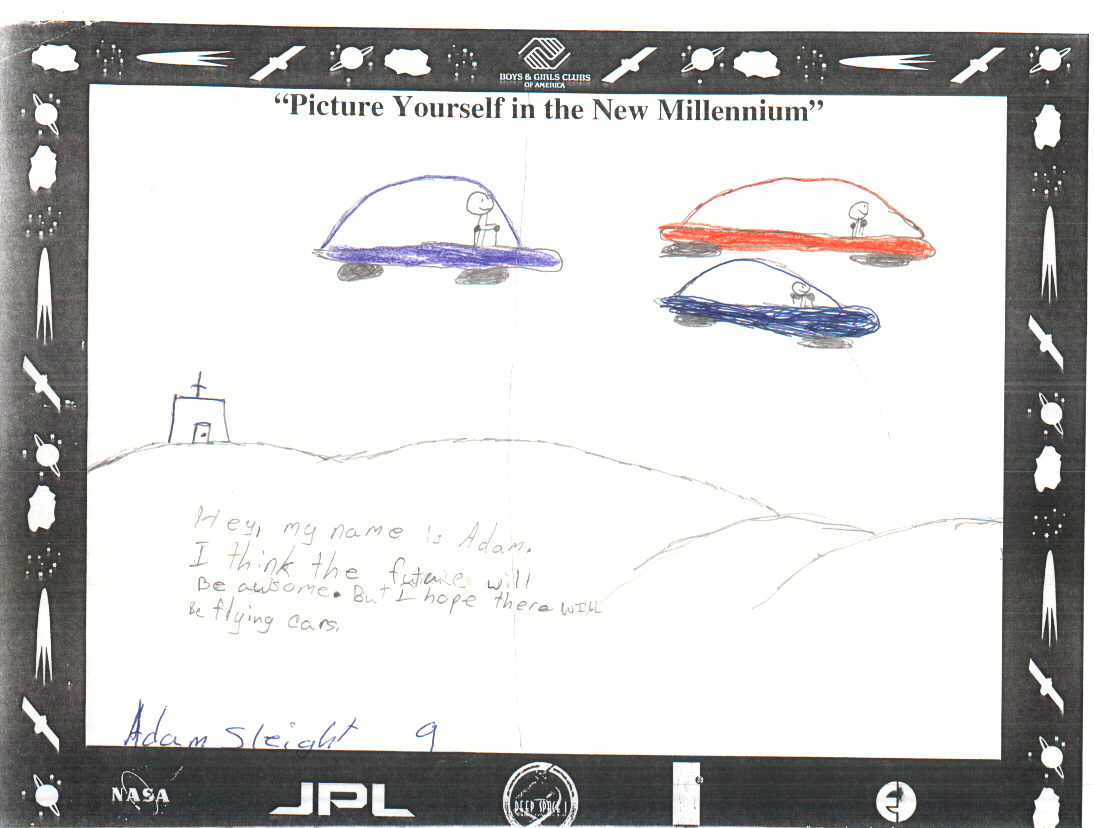 BOYS & GIRLS CLUBS
OF AMERICA
“Picture Yourself in the New Millennium”
Hey, my name is Adam.
I think the future will
Be awsome. But I hope there WILL
Be flying cars.
Adam Sleight 9
NASA JPL DEEP SPACE 1